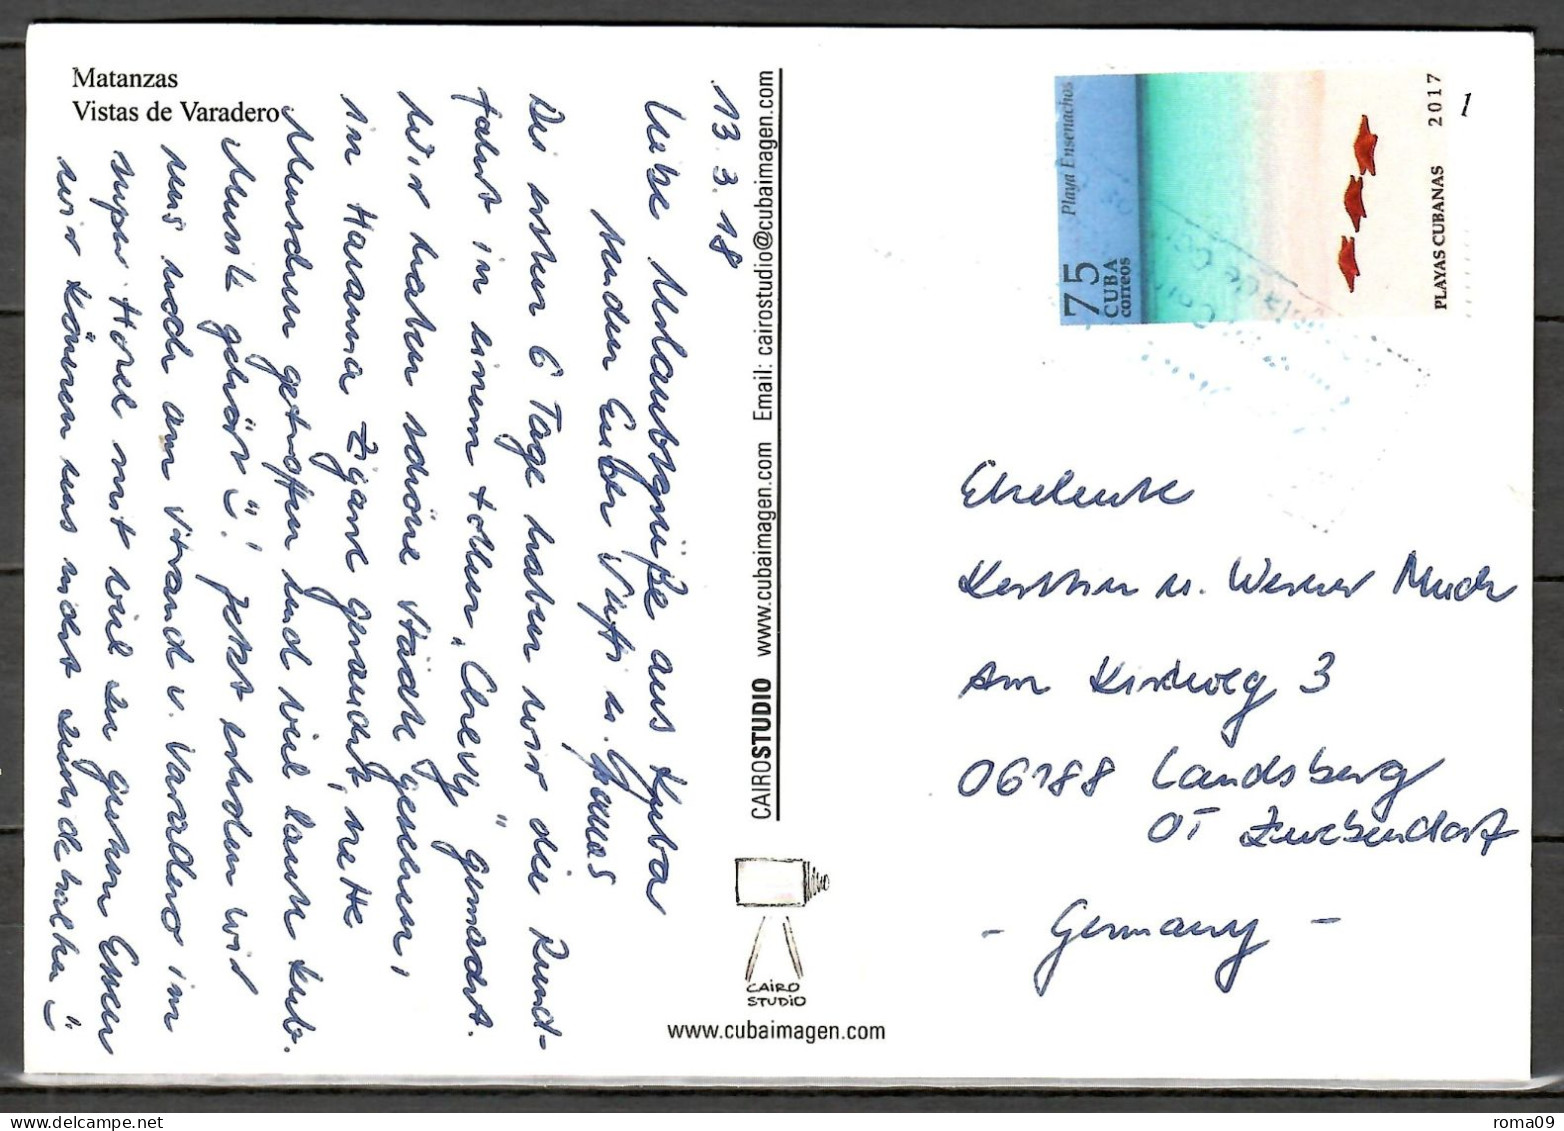 Matanzas
Vistas de Varadero
13.3.18
Liebe Urlaubsgrüße aus Kuba
senden Euch Steffi u.
Die ersten 6 Tage haben wir die Rund-
fahrt in einem tollen "Chevy" gemacht.
Wir haben schöne Städte gesehen,
in Havanna Zigarre geraucht, nette
Menschen getroffen und viel laute kub.
Musik gehört ü! Jetzt erholen wir
uns noch am Strand v. Varadero im
super Hotel mit viel zu gutem Essen
wir können uns nicht zurückhalten ü
CAIROSTUDIO www.cubaimagen.com Email: cairostudio@cubaimagen.com
CAIRO
STUDIO
www.cubaimagen.com
Playa Ensenachos
75
CUBA
correos
PLAYAS CUBANAS
2017
1
Eheleute
Kerstin u. Werner Much
Am Kirchweg 3
06188 Landsberg
OT Zwebendorf
- Germany -
roma09